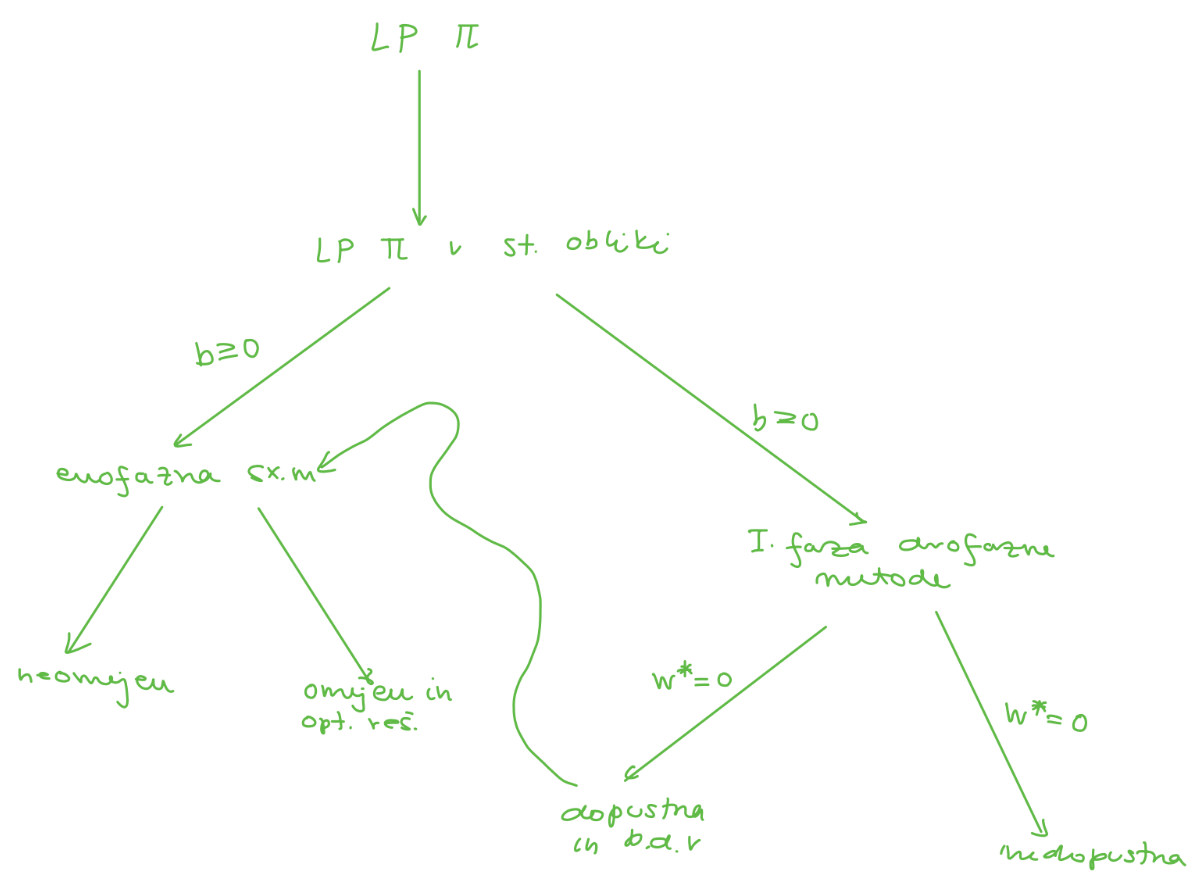 LP π
LP π v st. obliki
b≥0
b≥0
enofazna sx.m
I. faza dvofazne
metode
neomejen
omejen in
opt. reš.
w*=0
w*=0
dopustna
in b.d.r
nedopustna